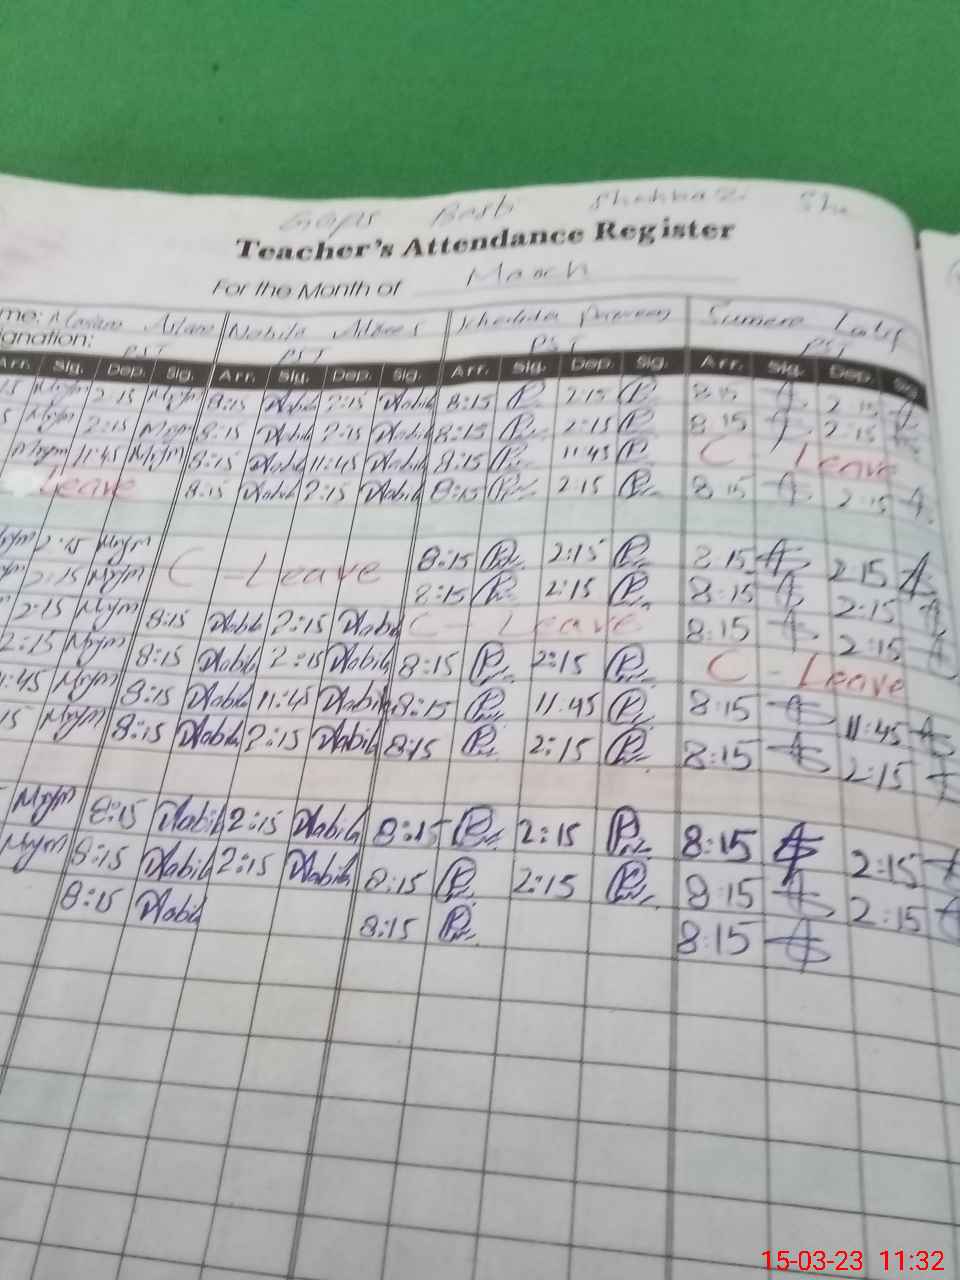 Teacher's Attendance Register
For the Month of March
me: Nabila Sumera
gnation: PST PST PST PST
Arr. Sig. Dep. Sig. Arr. Sig. Dep. Sig. Arr. Sig. Dep. Sig. Arr. Sig. Dep. Sig
15 Mrym 2:15 Mrym 8:15 Nabila 2:15 Nabila 8:15 P 2:15 P 8:15 2:15
5 Mrym 2:15 Mrym 8:15 Nabila 2:15 Nabila 8:15 P 2:15 P 8:15 2:15
Mrym 11:45 Mrym 8:15 Nabila 11:45 Nabila 8:15 P 11:45 P C - Leave
Leave 8:15 Nabila 2:15 Nabila 8:15 P 2:15 P 8:15 2:15
rym 2:15 Mrym C - Leave 8:15 P 2:15 P 8:15 2:15
ym 2:15 Mrym 8:15 P 2:15 P 8:15 2:15
2:15 Mrym 8:15 Nabila 2:15 Nabila C - Leave 8:15 2:15
2:15 Mrym 8:15 Nabila 2:15 Nabila 8:15 P 2:15 P C - Leave
:45 Mrym 8:15 Nabila 11:45 Nabila 8:15 P 11:45 P 8:15 11:45
15 Mrym 8:15 Nabila 2:15 Nabila 8:15 P 2:15 P 8:15 2:15
Mrym 8:15 Nabila 2:15 Nabila 8:15 P 2:15 P 8:15 2:15
Mrym 8:15 Nabila 2:15 Nabila 8:15 P 2:15 P 8:15 2:15
8:15 Nabila 8:15 P 8:15
15-03-23 11:32